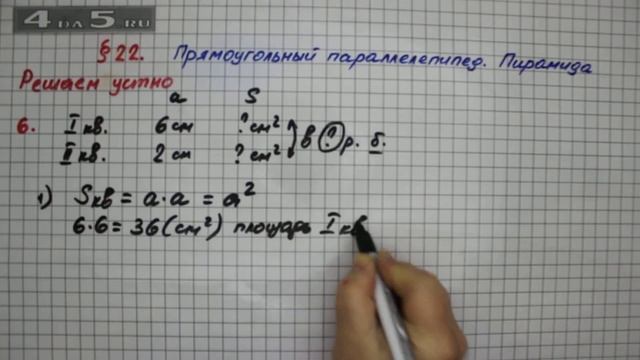 4 DA 5.RU
§ 22. Прямоугольный параллелепипед. Пирамида
Решаем устно
a S
6. I кв. 6 см ? см²
II кв. 2 см ? см²
в ? р. б.
1) Sкв = a·a = a²
6·6 = 36 (см²) площадь I кв